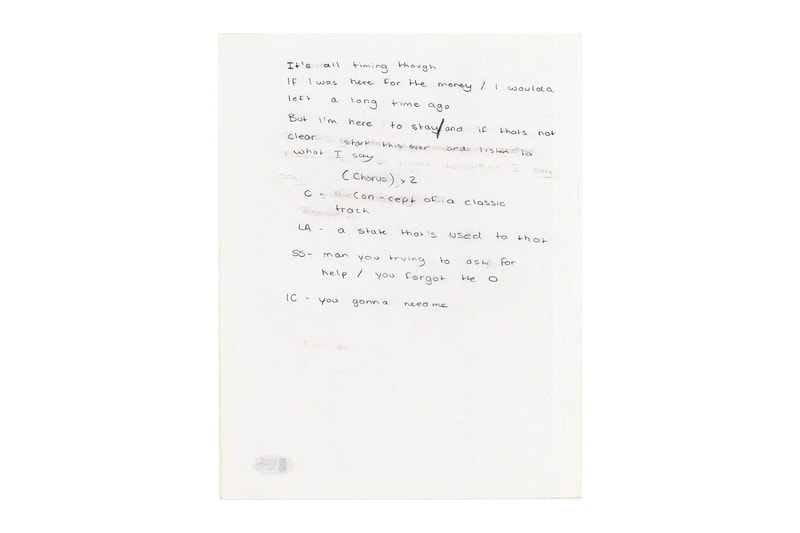 It's all timing though
If I was here for the money / I woulda
left a long time ago
But I'm here to stay/and if thats not
clear start this over and listen to
what I say
(Chorus) x 2
C - Con-cept of a classic
track
LA - a state that's used to that
SS - man you trying to ask for
help / you forgot the O
IC - you gonna need me